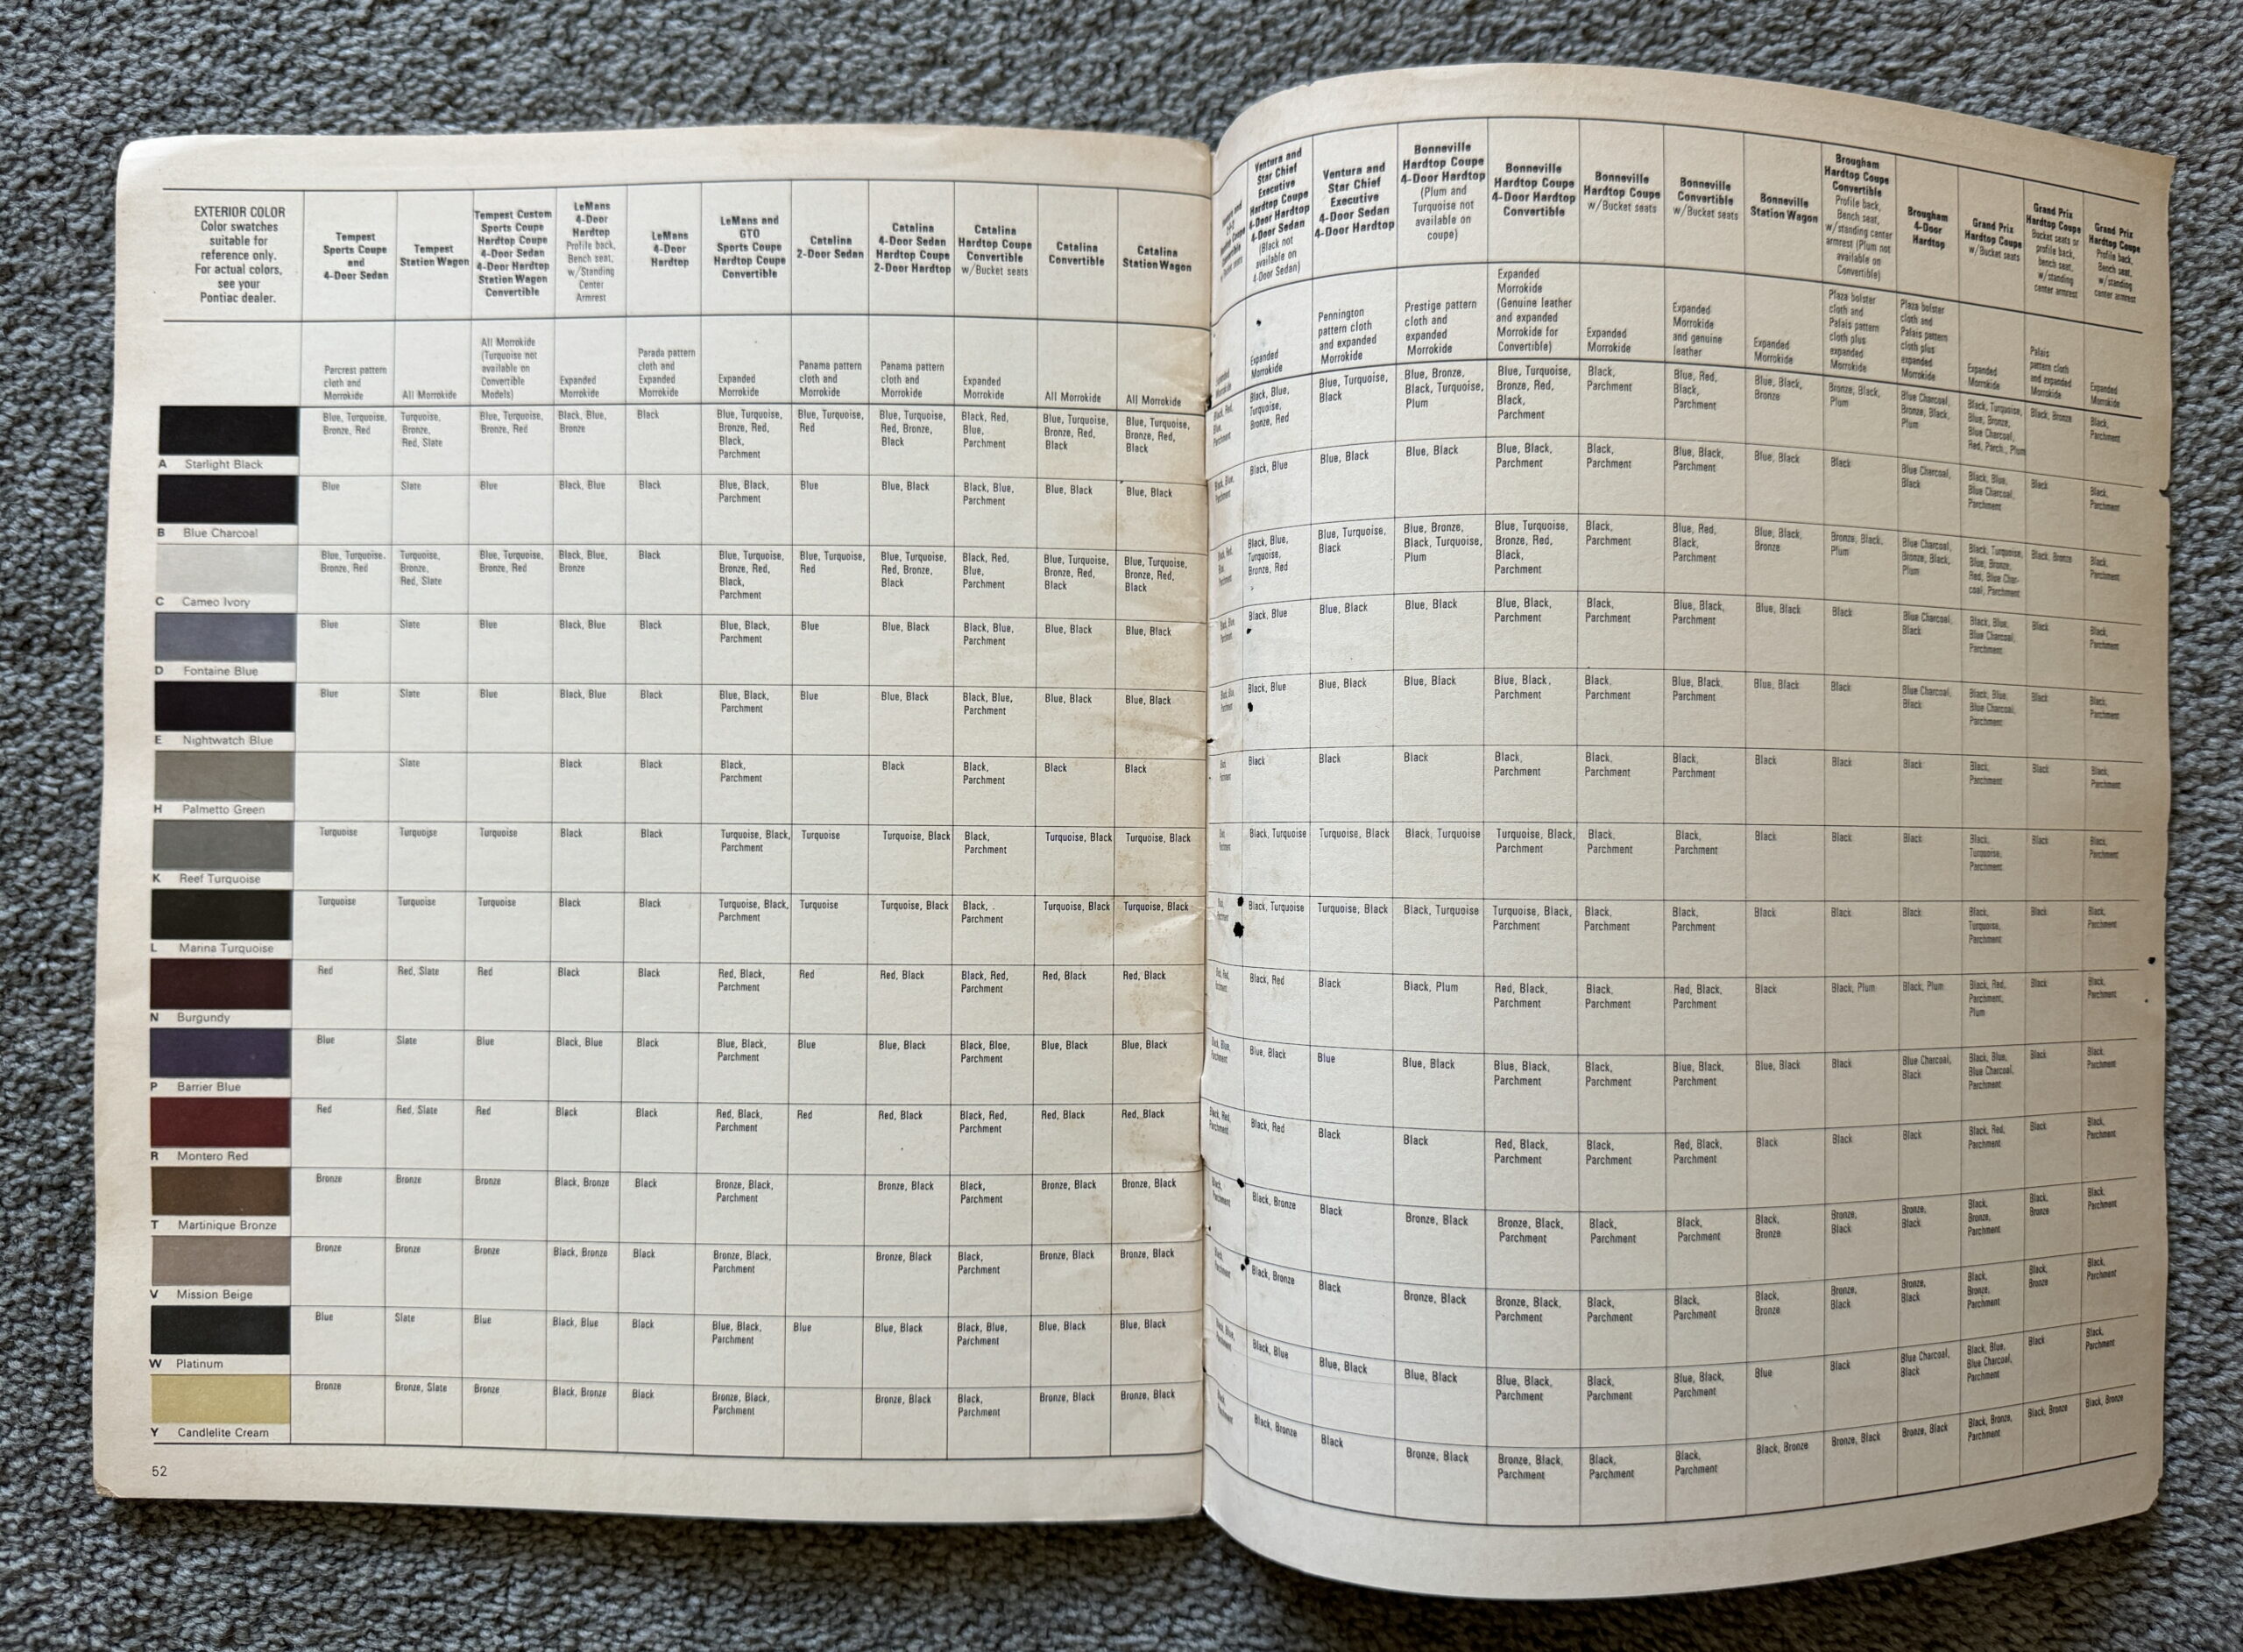 EXTERIOR COLOR
Color swatches
suitable for
reference only.
For actual colors,
see your
Pontiac dealer.
Tempest
Sports Coupe
and
4-Door Sedan
Tempest
Station Wagon
Tempest Custom
Sports Coupe
Hardtop Coupe
4-Door Sedan
4-Door Hardtop
Station Wagon
Convertible
LeMans
4-Door
Hardtop
Profile back,
Bench seat,
w/Standing
Center
Armrest
LeMans
4-Door
Hardtop
LeMans and
GTO
Sports Coupe
Hardtop Coupe
Convertible
Catalina
2-Door Sedan
Catalina
4-Door Sedan
Hardtop Coupe
2-Door Hardtop
Catalina
Hardtop Coupe
Convertible
w/Bucket seats
Catalina
Convertible
Catalina
Station Wagon
Parcrest pattern
cloth and
Morrokide
All Morrokide
All Morrokide
(Turquoise not
available on
Convertible
Models)
Expanded
Morrokide
Parada pattern
cloth and
Expanded
Morrokide
Expanded
Morrokide
Panama pattern
cloth and
Morrokide
Panama pattern
cloth and
Morrokide
Expanded
Morrokide
All Morrokide
All Morrokide
A Starlight Black
Blue, Turquoise,
Bronze, Red
Turquoise,
Bronze,
Red, Slate
Blue, Turquoise,
Bronze, Red
Black, Blue,
Bronze
Black
Blue, Turquoise,
Bronze, Red,
Black,
Parchment
Blue, Turquoise,
Red
Blue, Turquoise,
Red, Bronze,
Black
Black, Red,
Blue,
Parchment
Blue, Turquoise,
Bronze, Red,
Black
Blue, Turquoise,
Bronze, Red,
Black
B Blue Charcoal
Blue
Slate
Blue
Black, Blue
Black
Blue, Black,
Parchment
Blue
Blue, Black
Black, Blue,
Parchment
Blue, Black
Blue, Black
C Cameo Ivory
Blue, Turquoise.
Bronze, Red
Turquoise,
Bronze,
Red, Slate
Blue, Turquoise,
Bronze, Red
Black, Blue,
Bronze
Black
Blue, Turquoise,
Bronze, Red,
Black,
Parchment
Blue, Turquoise,
Red
Blue, Turquoise,
Red, Bronze,
Black
Black, Red,
Blue,
Parchment
Blue, Turquoise,
Bronze, Red,
Black
Blue, Turquoise,
Bronze, Red,
Black
D Fontaine Blue
Blue
Slate
Blue
Black, Blue
Black
Blue, Black,
Parchment
Blue
Blue, Black
Black, Blue,
Parchment
Blue, Black
Blue, Black
E Nightwatch Blue
Blue
Slate
Blue
Black, Blue
Black
Blue, Black,
Parchment
Blue
Blue, Black
Black, Blue,
Parchment
Blue, Black
Blue, Black
H Palmetto Green
Slate
Black
Black
Black,
Parchment
Black
Black,
Parchment
Black
Black
K Reef Turquoise
Turquoise
Turquoise
Turquoise
Black
Black
Turquoise, Black,
Parchment
Turquoise
Turquoise, Black
Black,
Parchment
Turquoise, Black
Turquoise, Black
L Marina Turquoise
Turquoise
Turquoise
Turquoise
Black
Black
Turquoise, Black,
Parchment
Turquoise
Turquoise, Black
Black,
Parchment
Turquoise, Black
Turquoise, Black
N Burgundy
Red
Red, Slate
Red
Black
Black
Red, Black,
Parchment
Red
Red, Black
Black, Red,
Parchment
Red, Black
Red, Black
P Barrier Blue
Blue
Slate
Blue
Black, Blue
Black
Blue, Black,
Parchment
Blue
Blue, Black
Black, Bloe,
Parchment
Blue, Black
Blue, Black
R Montero Red
Red
Red, Slate
Red
Black
Black
Red, Black,
Parchment
Red
Red, Black
Black, Red,
Parchment
Red, Black
Red, Black
T Martinique Bronze
Bronze
Bronze
Bronze
Black, Bronze
Black
Bronze, Black,
Parchment
Bronze, Black
Black,
Parchment
Bronze, Black
Bronze, Black
V Mission Beige
Bronze
Bronze
Bronze
Black, Bronze
Black
Bronze, Black,
Parchment
Bronze, Black
Black,
Parchment
Bronze, Black
Bronze, Black
W Platinum
Blue
Slate
Blue
Black, Blue
Black
Blue, Black,
Parchment
Blue
Blue, Black
Black, Blue,
Parchment
Blue, Black
Blue, Black
Y Candlelite Cream
Bronze
Bronze, Slate
Bronze
Black, Bronze
Black
Bronze, Black,
Parchment
Bronze, Black
Black,
Parchment
Bronze, Black
Bronze, Black
52
Ventura and
Star Chief
Executive
Hardtop Coupe
4-Door Hardtop
4-Door Sedan
(Black not
available on
4-Door Sedan)
Ventura and
Star Chief
Executive
4-Door Sedan
4-Door Hardtop
Bonneville
Hardtop Coupe
4-Door Hardtop
(Plum and
Turquoise not
available on
coupe)
Bonneville
Hardtop Coupe
4-Door Hardtop
Convertible
Bonneville
Hardtop Coupe
w/Bucket seats
Bonneville
Convertible
w/Bucket seats
Bonneville
Station Wagon
Brougham
Hardtop Coupe
Convertible
Profile back,
Bench seat,
w/standing center
armrest (Plum not
available on
Convertible)
Brougham
4-Door
Hardtop
Grand Prix
Hardtop Coupe
w/Bucket seats
Grand Prix
Hardtop Coupe
Bucket seats or
profile back,
bench seat,
w/standing
center armrest
Grand Prix
Hardtop Coupe
Profile back,
Bench seat,
w/standing
center armrest
Expanded
Morrokide
Pennington
pattern cloth
and expanded
Morrokide
Prestige pattern
cloth and
expanded
Morrokide
Expanded
Morrokide
(Genuine leather
and expanded
Morrokide for
Convertible)
Expanded
Morrokide
Expanded
Morrokide
and genuine
leather
Expanded
Morrokide
Plaza bolster
cloth and
Palais pattern
cloth plus
expanded
Morrokide
Plaza bolster
cloth and
Palais pattern
cloth plus
expanded
Morrokide
Expanded
Morrokide
Palais
pattern cloth
and expanded
Morrokide
Expanded
Morrokide
Black, Blue,
Turquoise,
Bronze, Red
Blue, Turquoise,
Black
Blue, Bronze,
Black, Turquoise,
Plum
Blue, Turquoise,
Bronze, Red,
Black,
Parchment
Black,
Parchment
Blue, Red,
Black,
Parchment
Blue, Black,
Bronze
Bronze, Black,
Plum
Blue Charcoal,
Bronze, Black,
Plum
Black, Turquoise,
Blue, Bronze,
Blue Charcoal,
Red, Parch., Plum
Black, Bronze
Black,
Parchment
Black, Blue
Blue, Black
Blue, Black
Blue, Black,
Parchment
Black,
Parchment
Blue, Black,
Parchment
Blue, Black
Black
Blue Charcoal,
Black
Black, Blue,
Blue Charcoal,
Parchment
Black
Black,
Parchment
Black, Blue,
Turquoise,
Bronze, Red
Blue, Turquoise,
Black
Blue, Bronze,
Black, Turquoise,
Plum
Blue, Turquoise,
Bronze, Red,
Black,
Parchment
Black,
Parchment
Blue, Red,
Black,
Parchment
Blue, Black,
Bronze
Bronze, Black,
Plum
Blue Charcoal,
Bronze, Black,
Plum
Black, Turquoise,
Blue, Bronze,
Red, Blue Char-
coal, Parchment
Black, Bronze
Black,
Parchment
Black, Blue
Blue, Black
Blue, Black
Blue, Black,
Parchment
Black,
Parchment
Blue, Black,
Parchment
Blue, Black
Black
Blue Charcoal,
Black
Black, Blue,
Blue Charcoal,
Parchment
Black
Black,
Parchment
Black, Blue
Blue, Black
Blue, Black
Blue, Black,
Parchment
Black,
Parchment
Blue, Black,
Parchment
Blue, Black
Black
Blue Charcoal,
Black
Black, Blue,
Blue Charcoal,
Parchment
Black
Black,
Parchment
Black
Black
Black
Black,
Parchment
Black,
Parchment
Black,
Parchment
Black
Black
Black
Black,
Parchment
Black
Black,
Parchment
Black, Turquoise
Turquoise, Black
Black, Turquoise
Turquoise, Black,
Parchment
Black,
Parchment
Black,
Parchment
Black
Black
Black
Black,
Turquoise,
Parchment
Black
Black,
Parchment
Black, Turquoise
Turquoise, Black
Black, Turquoise
Turquoise, Black,
Parchment
Black,
Parchment
Black,
Parchment
Black
Black
Black
Black,
Turquoise,
Parchment
Black
Black,
Parchment
Black, Red
Black
Black, Plum
Red, Black,
Parchment
Black,
Parchment
Red, Black,
Parchment
Black
Black, Plum
Black, Plum
Black, Red,
Parchment,
Plum
Black
Black,
Parchment
Blue, Black
Blue
Blue, Black
Blue, Black,
Parchment
Black,
Parchment
Blue, Black,
Parchment
Blue, Black
Black
Blue Charcoal,
Black
Black, Blue,
Blue Charcoal,
Parchment
Black
Black,
Parchment
Black, Red
Black
Black
Red, Black,
Parchment
Black,
Parchment
Red, Black,
Parchment
Black
Black
Black
Black, Red,
Parchment
Black
Black,
Parchment
Black, Bronze
Black
Bronze, Black
Bronze, Black,
Parchment
Black,
Parchment
Black,
Parchment
Black,
Bronze
Bronze,
Black
Bronze,
Black
Black,
Bronze,
Parchment
Black,
Bronze
Black,
Parchment
Black, Bronze
Black
Bronze, Black
Bronze, Black,
Parchment
Black,
Parchment
Black,
Parchment
Black,
Bronze
Bronze,
Black
Bronze,
Black
Black,
Bronze,
Parchment
Black,
Bronze
Black,
Parchment
Black, Blue
Blue, Black
Blue, Black
Blue, Black,
Parchment
Black,
Parchment
Blue, Black,
Parchment
Blue
Black
Blue Charcoal,
Black
Black, Blue,
Blue Charcoal,
Parchment
Black
Black,
Parchment
Black, Bronze
Black
Bronze, Black
Bronze, Black,
Parchment
Black,
Parchment
Black,
Parchment
Black, Bronze
Bronze, Black
Bronze, Black
Black, Bronze,
Parchment
Black, Bronze
Black, Bronze